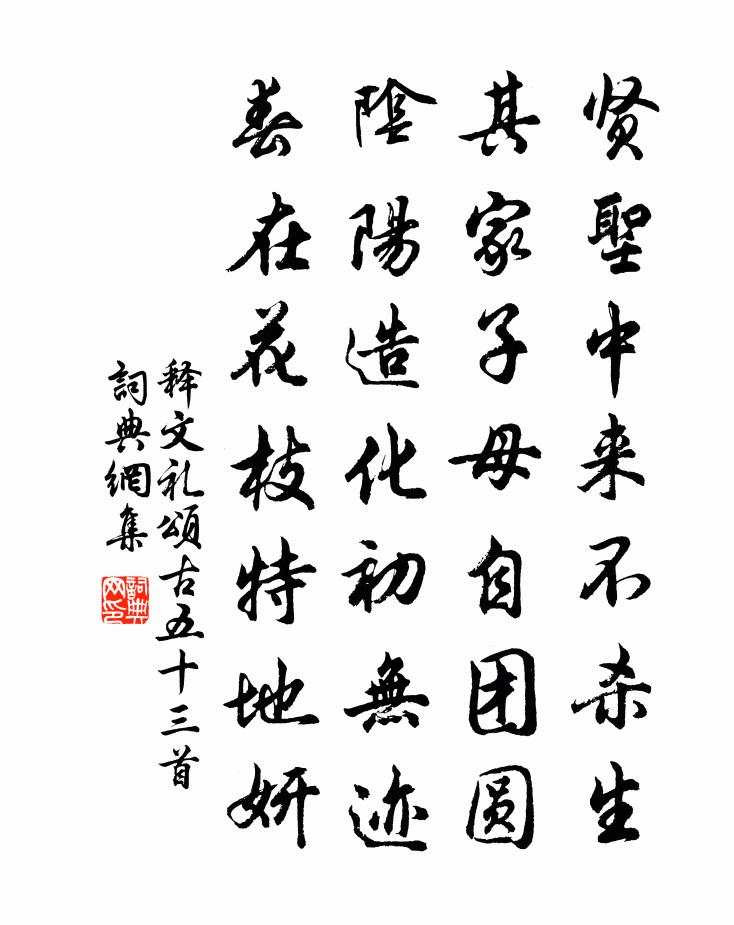 贤聖中来不杀生
其家子母自团圆
陰陽造化初無迹
春在花枝特地妍
释文礼頌古五十三首
詞典網集
詞典网印